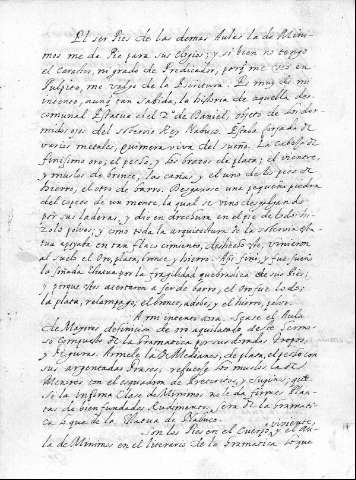 El ser Pies de las demas Aulas la de Mini-
mos me da Pie para sus elogios; y si bien no tengo
el Caracter, ni grado de Predicador, porq me veo en
Pulpito, me valgo de la Escritura. Es muy de mi
intento, aunq tan sabida, la historia de aquella des-
comunal Estatua en el 2º de Daniel, objeto de los dor-
midos ojos del sobervio Rey Nabuco. Estaba forjada de
varios metales, quimera viva del sueño. La cabeza de
finissimo oro; el pecho, y los brazos de plata; el vientre,
y muslos de bronce, las cañas y el uno de los pies de
hierro, el otro de barro. Desgajose una pequeña piedra
del copete de un monte, la qual se vino desgajando
por sus laderas, y dio en derechura en el pie de lodo: hi-
zolo polvos, y como toda la arquitectura de la sobervia Esta-
tua estaba en tan flaco cimiento, deshecho este, vinieron
al suelo el Oro, plata, bronce y hierro. Assi fina, y fue sueño
la soñada Estatua por la fragilidad quebradiza de sus Pies;
y porque estos acertaron a ser de barro, el Oro fue lodo;
la plata, relampago; el bronce, adobe; y el hierro, polvo.
A mi intento aora. Sease el Aula
de Mayores
de la Gramatica por sus doradas Tropos,
y Figuras. Armela la de Medianos, de plata, el pecho con
sus argentadas Frases; refuerze los muslos la de
Menores con el esquadron de Preteritos, y Supinos, que
si la infima Clase de Minimos no le da firmes Plan-
tas de bien fundados Rudimentos, sera de la Gramati-
ca lo que de la Estatua de Nabuco.
Son los Pies en el Cuerpo viviente, y el Au-
la de Minimos en el literario de la Gramatica lo que